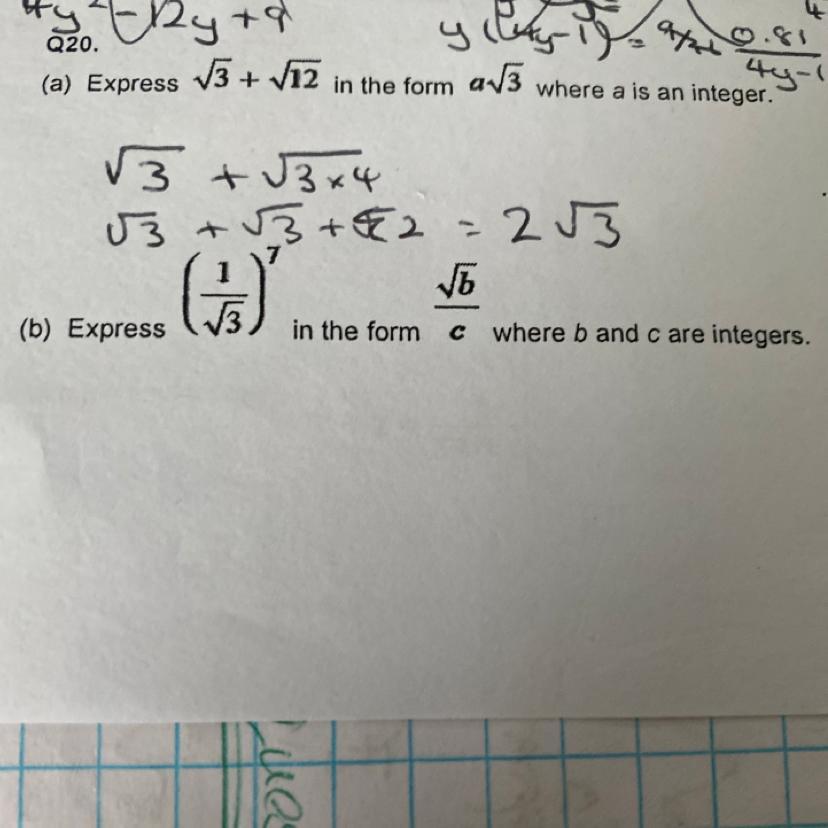 4y² - 12y + 9
y(4y-1) = 0.81
4y-1
Q20.
(a) Express √3 + √12 in the form a√3 where a is an integer.
√3 + √3×4
√3 + √3 + 2 = 2√3
(b) Express (1/√3)⁷ in the form √b/c where b and c are integers.